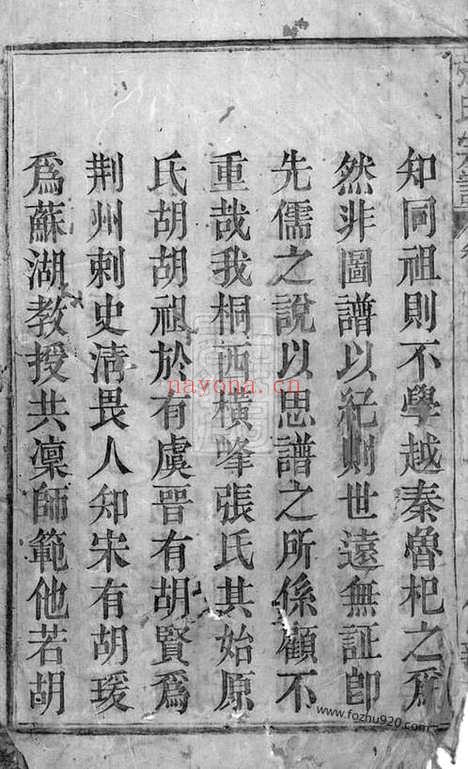 知同祖則不學越秦魯杞之爲
然非圖譜以紀則世遠無証卽
先儒之說以思譜之所係顧不
重哉我桐西橫峰張氏其始原
氏胡胡祖於有虞晉有胡賢爲
荆州刺史清畏人知宋有胡瑗
爲蘇湖教授共凜師範他若胡
nayona.cn
www.fozhu920.com